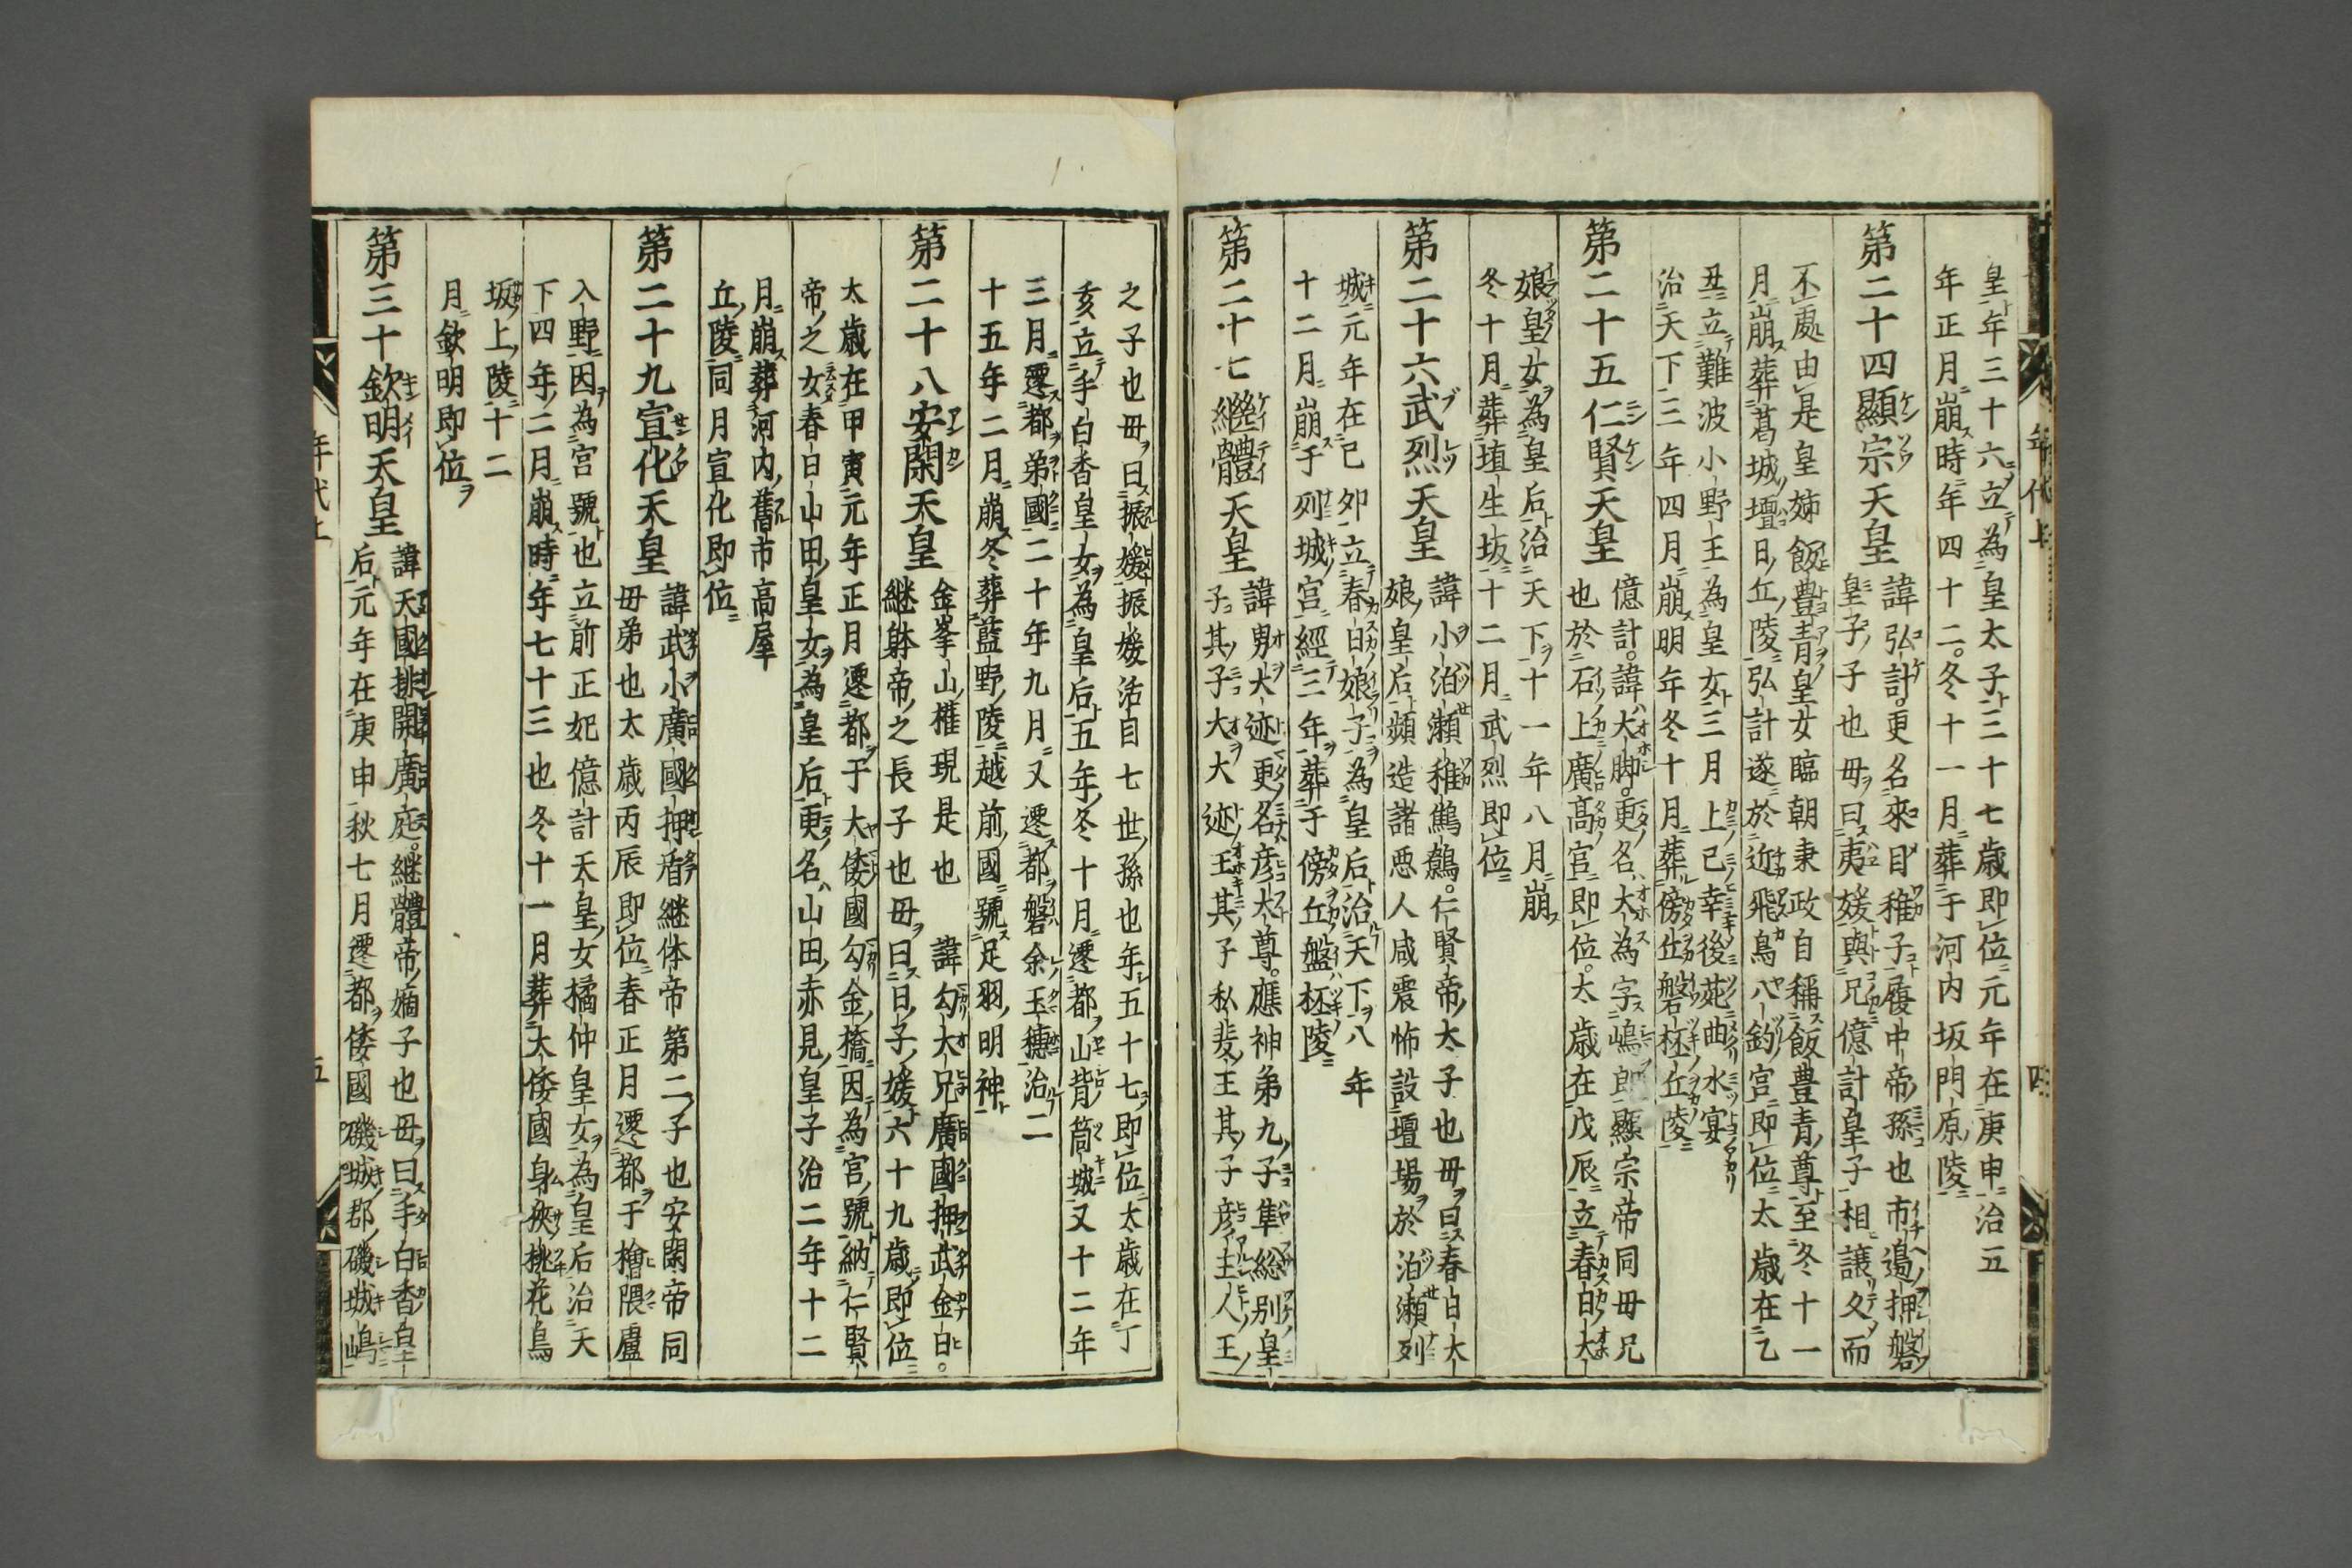 皇年三十六立為皇太子三十七歳即位元年在庚申治五
年正月崩時年四十二。冬十一月葬于河内坂門原陵
第二十四顯宗天皇
諱弘計。更名來目稚子履中帝孫也市邉押磐
皇子子也毋曰夷媛與兄億計皇子相譲久而
不處由是皇姉飯豊青皇女臨朝秉政自稱飯豊青尊至冬十一
月崩葬葛城壇日丘陵弘計遂於近飛鳥八釣宮即位太歳在乙
丑立難波小野王為皇女三月上巳幸後苑曲水宴
治天下三年四月崩明年冬十月葬傍丘磐杯丘陵
第二十五仁賢天皇
億計。諱大脚。更名大為字嶋郎顯宗帝同毋兄
也於石上廣髙宮即位。太歳在戊辰立春日大
娘皇女為皇后治天下十一年八月崩
冬十月葬埴生坂十二月武烈即位
第二十六武烈天皇
諱小泊瀬稚鷦鷯。仁賢帝太子也毋曰春日大
娘皇后頻造諸悪人咸震怖設壇場於泊瀬列
城元年在己夘立春日娘子為皇后治天下八年
十二月崩于列城宮經三年葬于傍丘盤杯陵
第二十七繼體天皇
諱男大迹更名彦太尊。應神弟九子隼総別皇
子其子大大迹王其子私斐王其子彦主人王
之子也毋曰振媛振媛活目七世孫也年五十七即位太歳在丁
亥立手白香皇女為皇后五年冬十月遷都山背筒城又十二年
三月遷都弟國二十年九月又遷都磐余玉穗治二
十五年二月崩冬葬藍野陵越前國號足羽明神
第二十八安閑天皇
金峯山權現是也　諱勾大兄廣國押武金日。
継躰帝之長子也毋曰日子媛六十九歳即位
太歳在甲寅元年正月遷都于大倭國勾金橋因為宮號納仁賢
帝之女春日山田皇女為皇后更名山田赤見皇子治二年十二
月崩葬河内舊市髙屋
丘陵同月宣化即位
第二十九宣化天皇
諱武小廣國押盾継体帝第二子也安閑帝同
毋弟也太歳丙辰即位春正月遷都于檜隈盧
入野因為宮號也立前正妃億計天皇女橘仲皇女為皇后治天
下四年二月崩時年七十三也冬十一月葬大倭國身狹桃花鳥
坂上陵十二
月欽明即位
第三十欽明天皇
諱天國排開廣庭。継體帝嫡子也毋曰手白香皇
后元年在庚申秋七月遷都倭國磯城郡磯城嶋
年代上
四
年代上
五